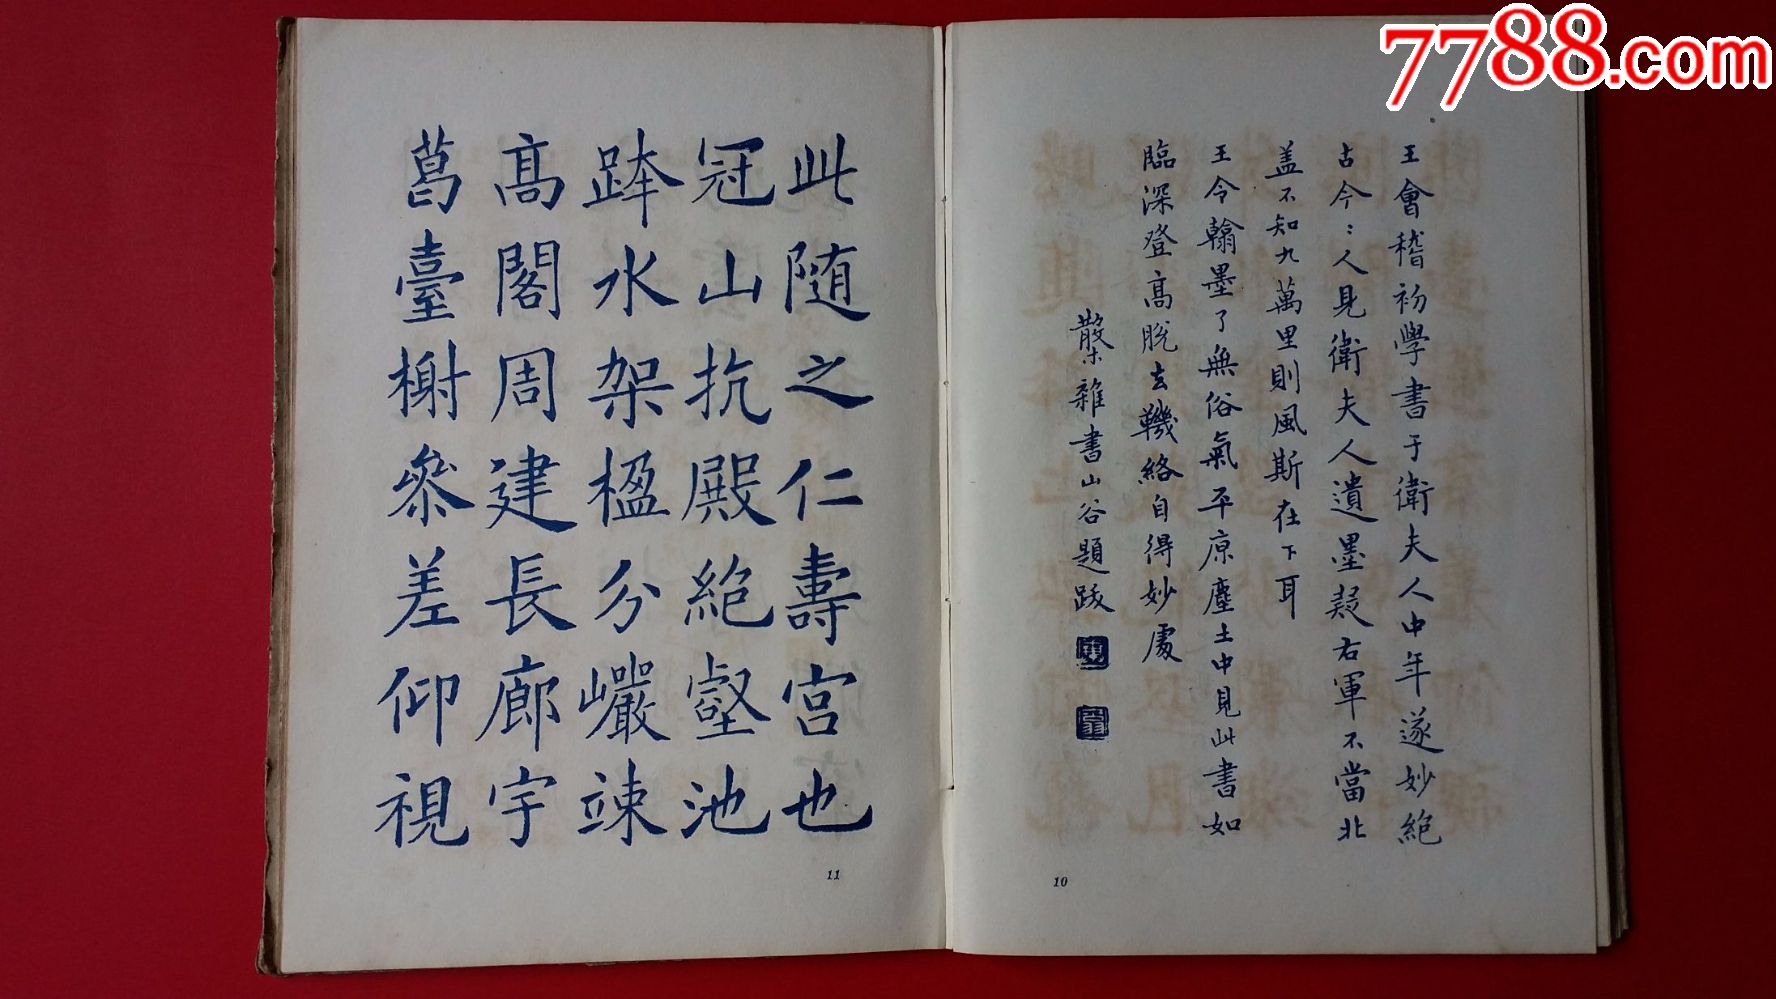 7788.com
王會稽初學書于衛夫人中年遂妙絕
古今〻人見衛夫人遺墨疑右軍不當北
盖不知九萬里則風斯在下耳
王令翰墨了無俗氣平原塵土中見此書如
臨深登髙脫去鞿絡自得妙處
散木雜書山谷題跋
10
此随之仁壽宮也
冠山抗殿絕壑池
水架楹分巖竦
髙閣周建長廊宇
葛臺榭參差仰視
11